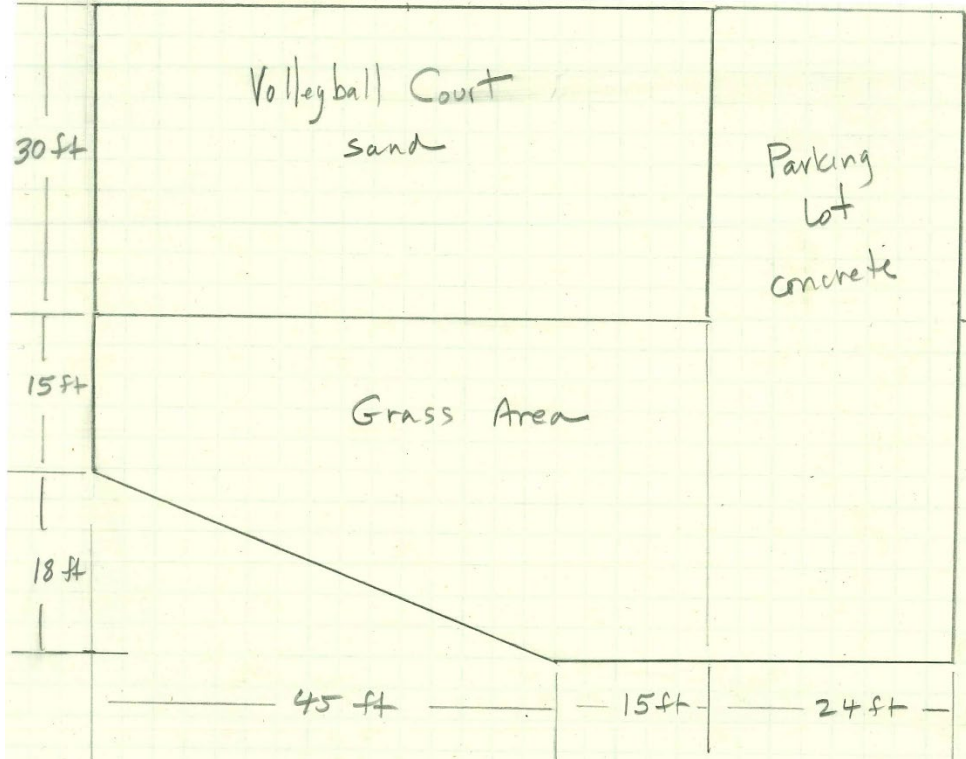 Volleyball Court
sand
30 ft
Parking
Lot
concrete
15 ft
Grass Area
18 ft
45 ft
15 ft
24 ft